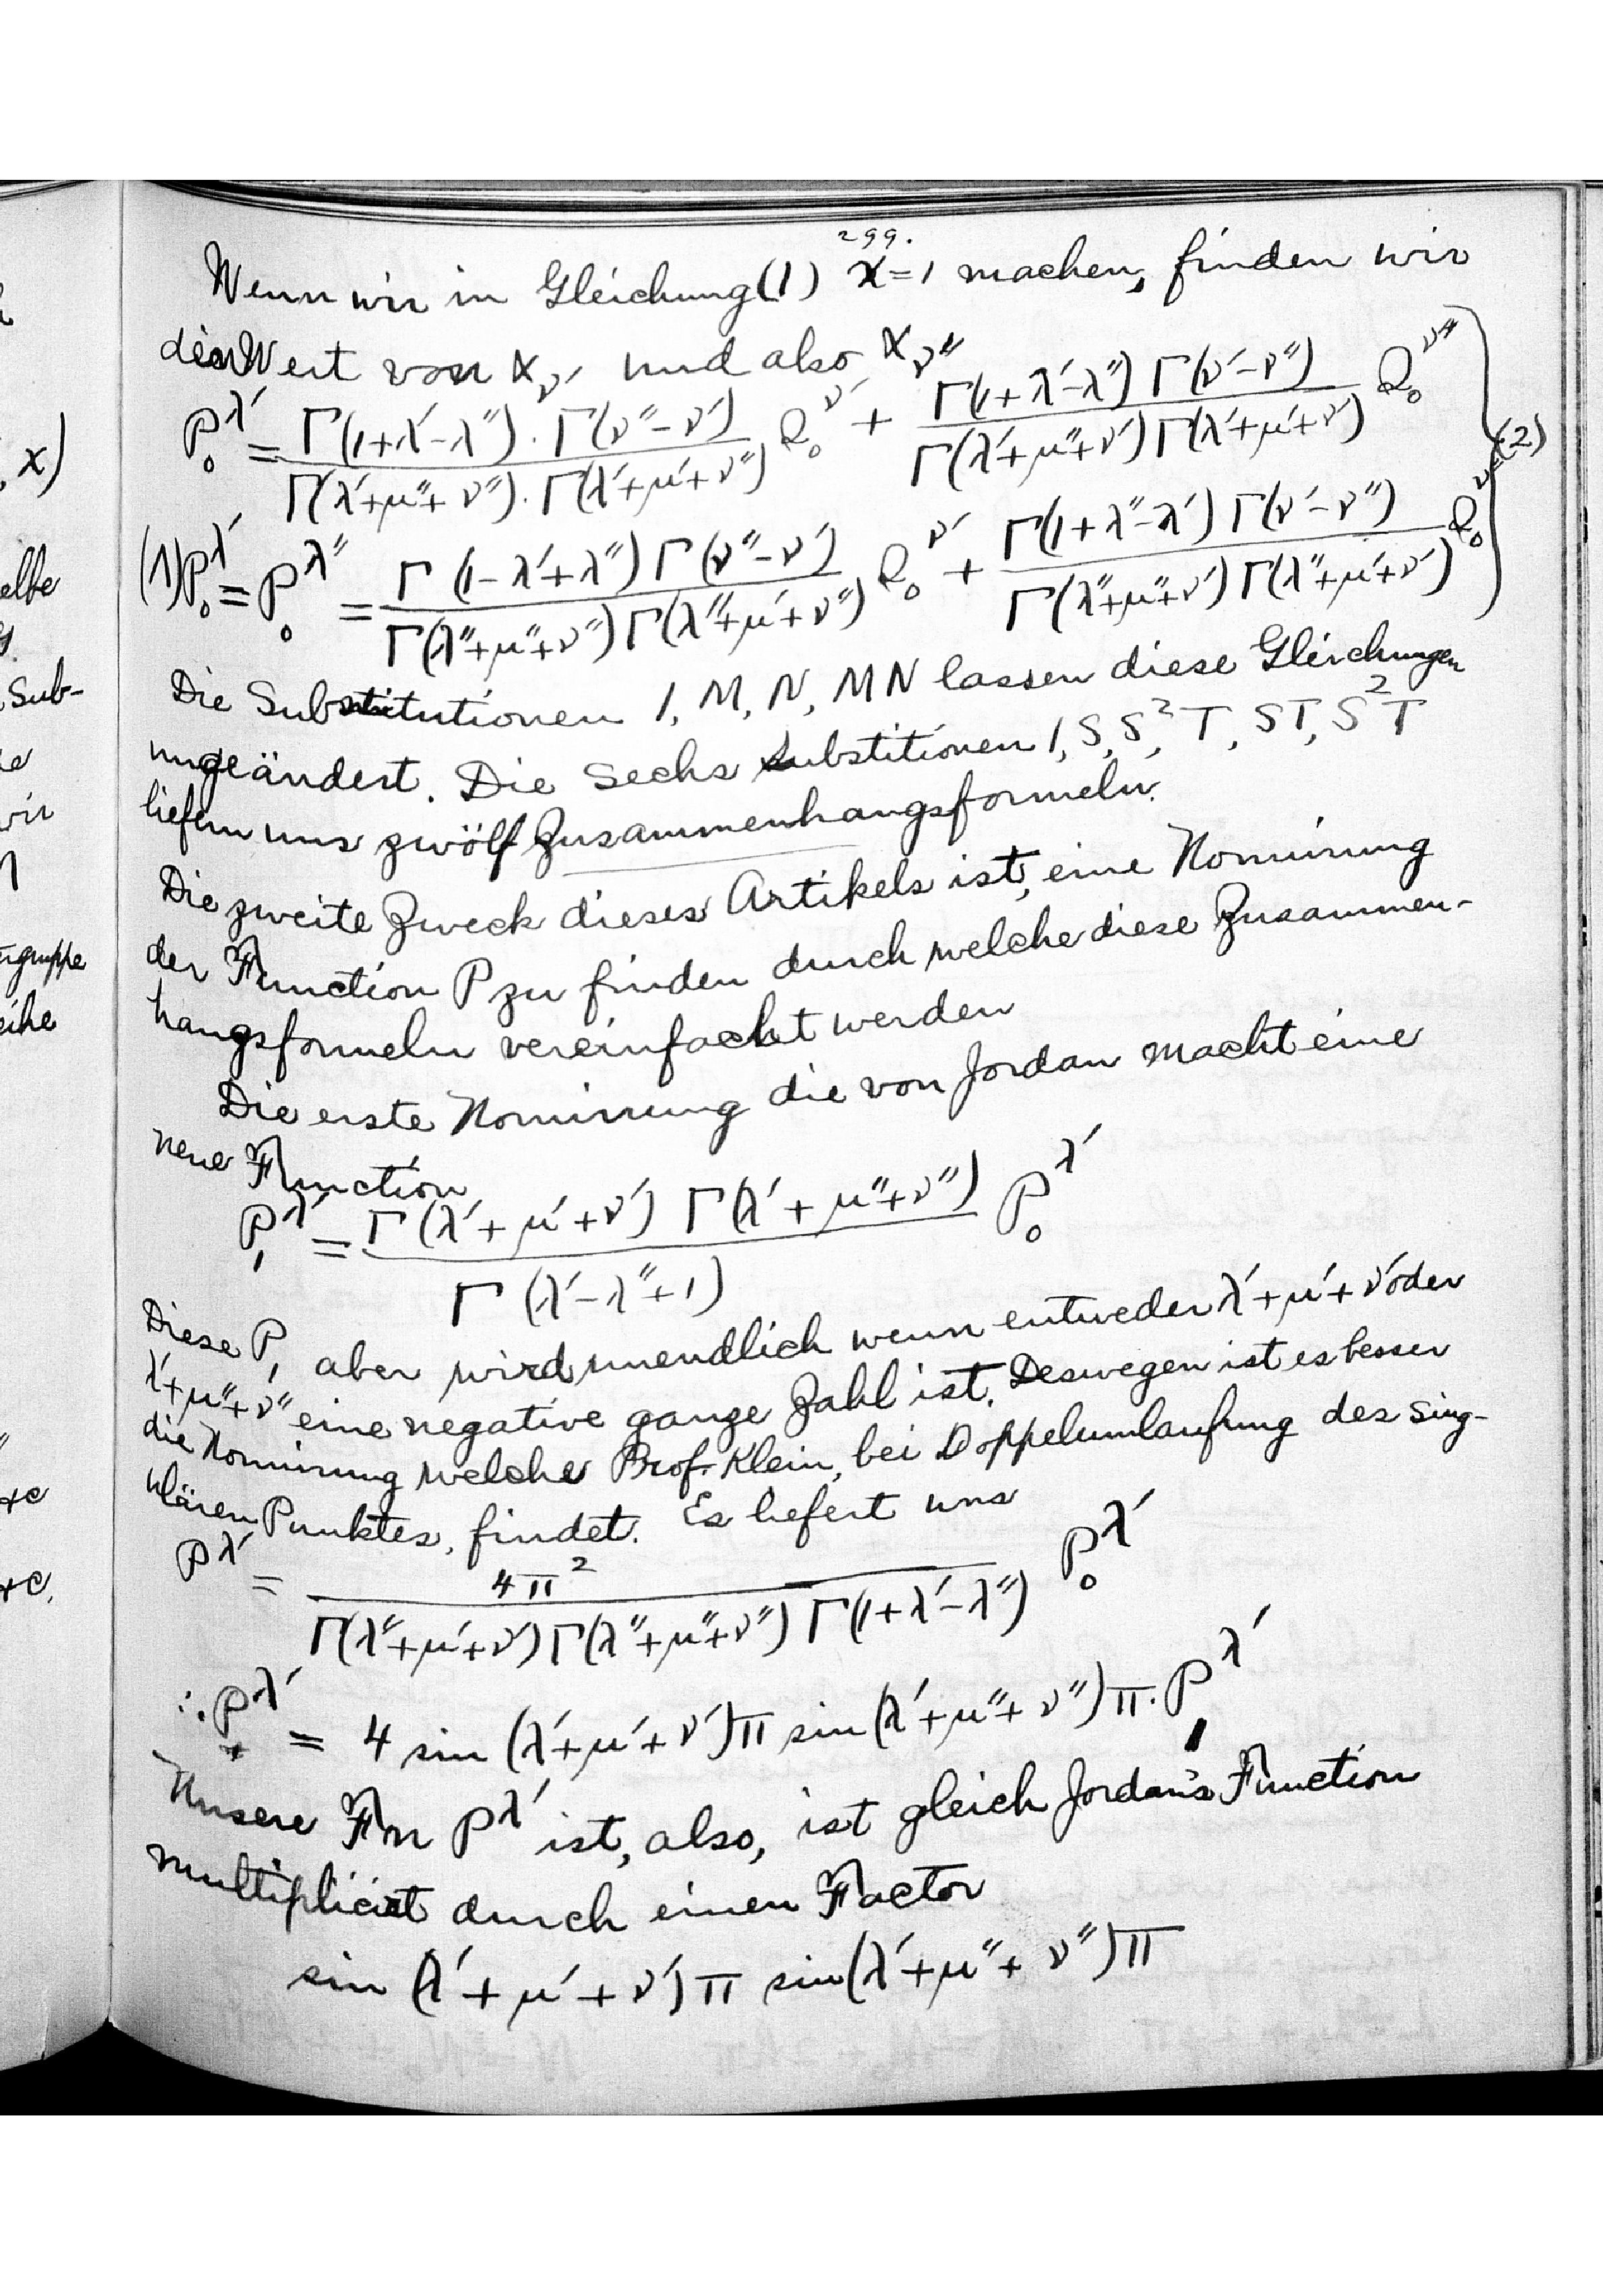 299.
Wenn wir in Gleichung (1) x=1 machen, finden wir
den Wert von α_ν′ und also α_ν″
P₀^λ′ = Γ(1+λ′-λ″). Γ(ν″-ν′) / Γ(λ′+μ″+ν″). Γ(λ′+μ′+ν″) Q₀^ν′ + Γ(1+λ′-λ″) Γ(ν′-ν″) / Γ(λ′+μ″+ν′) Γ(λ′+μ′+ν′) Q₀^ν″
(2)
(Λ)P₀^λ′ = P₀^λ″ = Γ(1-λ′+λ″) Γ(ν″-ν′) / Γ(λ″+μ″+ν″) Γ(λ″+μ′+ν″) Q₀^ν′ + Γ(1+λ″-λ′) Γ(ν′-ν″) / Γ(λ″+μ″+ν′) Γ(λ″+μ′+ν′) Q₀^ν″
Die Substitutionen 1, M, N, MN lassen diese Gleichungen
ungeändert. Die sechs substitionen 1, S, S², T, ST, S²T
liefern uns zwölf Zusammenhangsformeln.
Die zweite Zweck dieses Artikels ist, eine Normirung
der Function P zu finden durch welche diese Zusammen-
hangsformeln vereinfacht werden
Die erste Normirung die von Jordan macht eine
neue Function
P₁^λ′ = Γ(λ′+μ′+ν′) Γ(λ′+μ″+ν″) / Γ(λ′-λ″+1) P₀^λ′
Diese P₁ aber wird unendlich wenn entweder λ′+μ′+ν′ oder
λ′+μ″+ν″ eine negative ganze Zahl ist. Deswegen ist es besser
die Normirung welche Prof. Klein, bei Doppelumlaufung des sing-
ulären Punktes, findet. Es liefert uns
P^λ′ = 4π² / Γ(λ″+μ′+ν′) Γ(λ″+μ″+ν″) Γ(1+λ′-λ″) P₀^λ′
∴ P^λ′ = 4 sin (λ′+μ′+ν′)π sin (λ′+μ″+ν″)π. P₁^λ′
Unsere Fn P^λ′ ist, also, ist gleich Jordan's Function
multiplicirt durch einen Factor
sin (λ′+μ′+ν′)π sin(λ′+μ″+ν″)π
, x)
elbe
Sub-
wir
gruppe
eihe